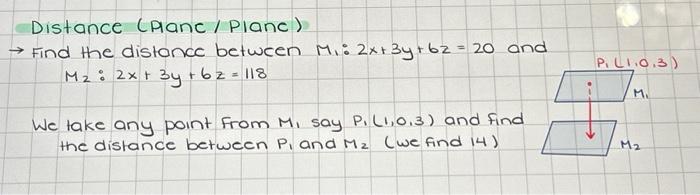 Distance (Plane / Plane)
→ Find the distance between M₁: 2x+3y+6z = 20 and
M₂: 2x+3y+6z = 118
P₁(1,0,3)
M₁
We take any point from M₁ say P₁(1,0,3) and find
the distance between P₁ and M₂ (we find 14)
M₂